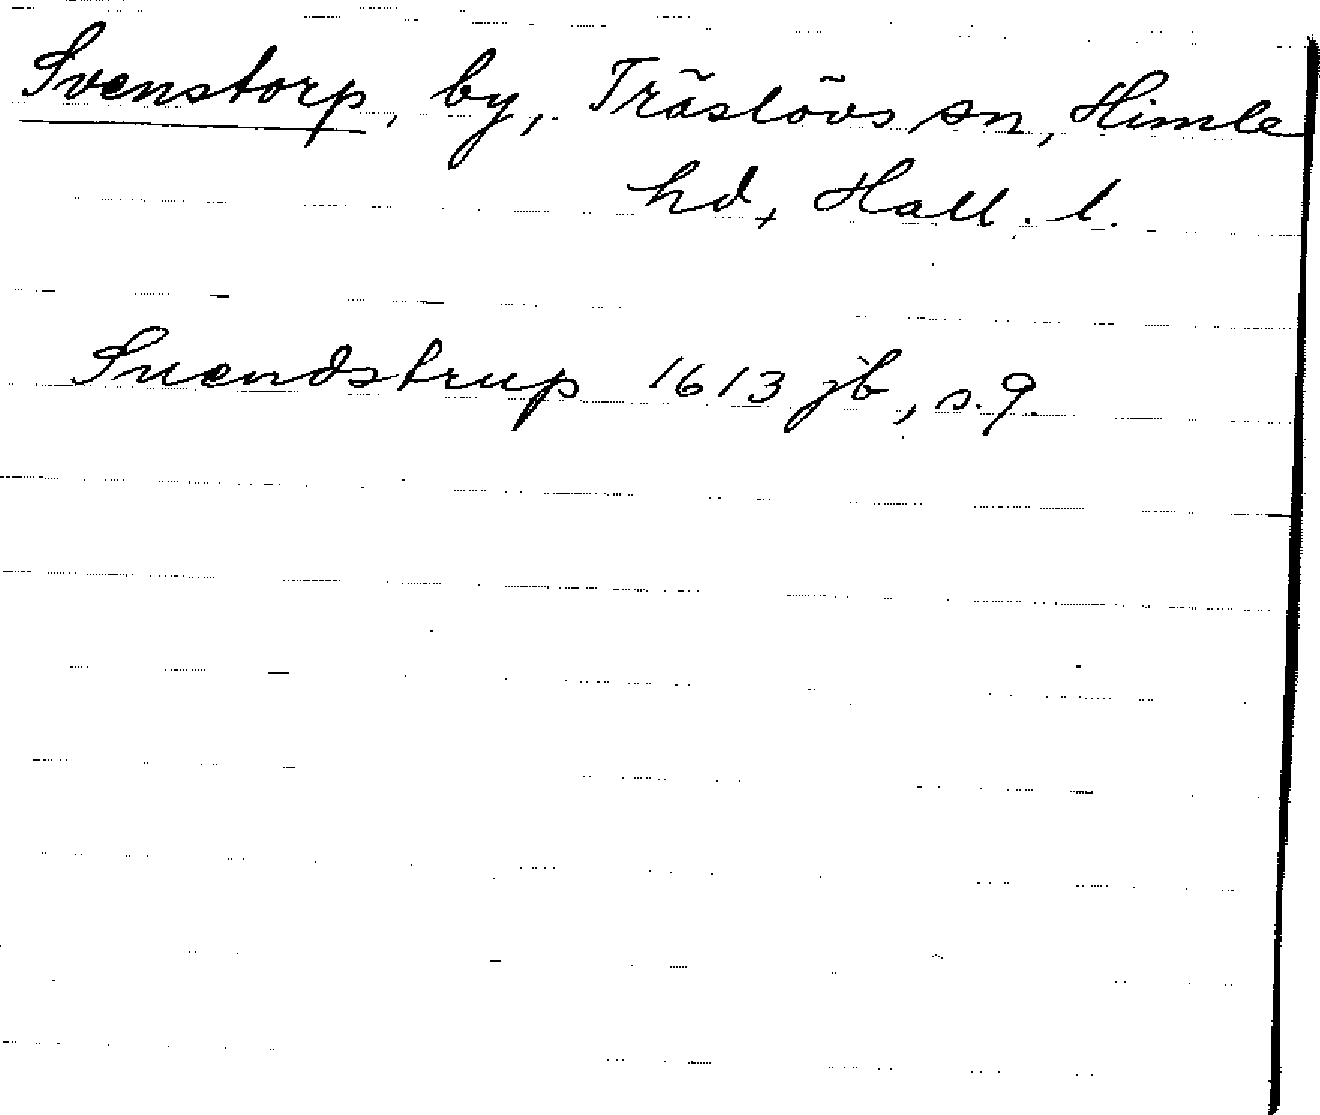 Svenstorp, by, Träslövs sn, Himle
hd, Hall. l.
Suendstrup 1613 jb, s. 9.